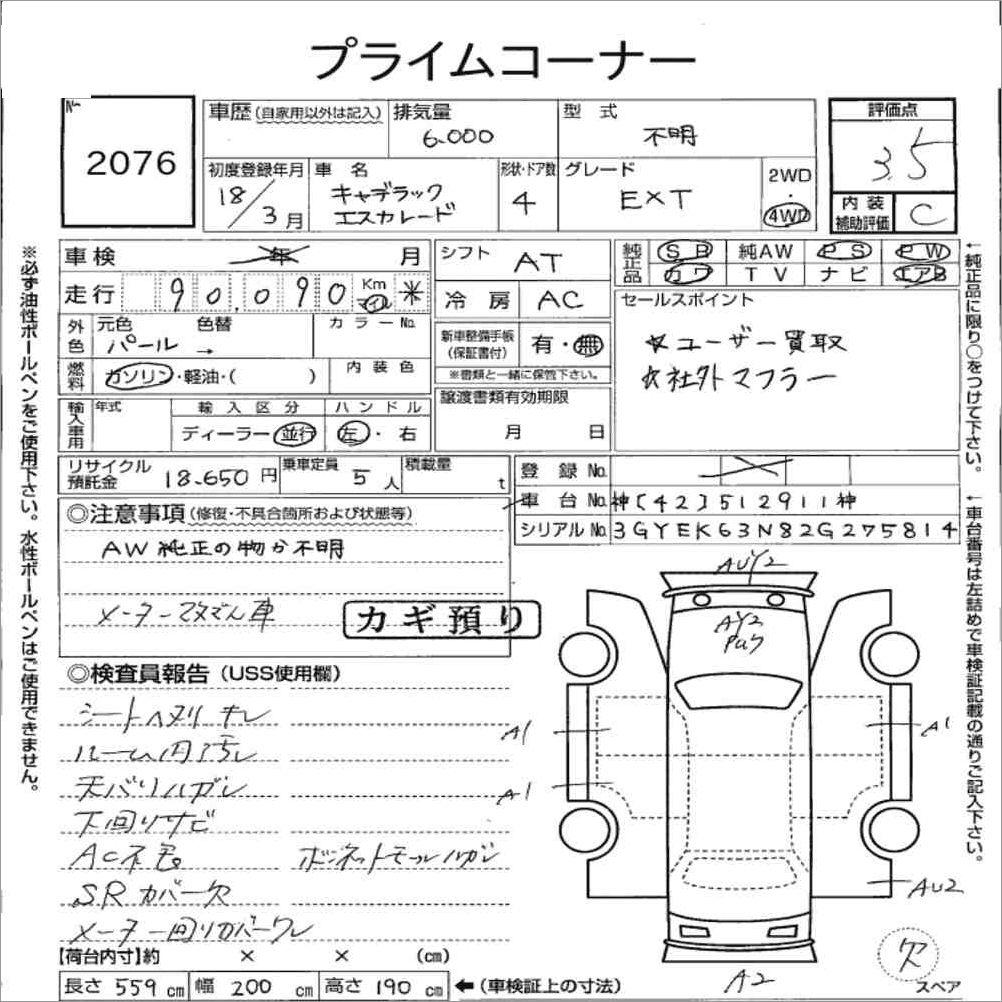 プライムコーナー
No.
2076
車歴(自家用以外は記入)
排気量
6.000
型 式
不明
評価点
3.5
初度登録年月
18/3月
車 名
キャデラック
エスカレード
形状・ドア数
4
グレード
EXT
2WD
・
4WD
内 装
補助評価
C
※必ず油性ボールペンをご使用下さい。水性ボールペンはご使用できません。
車検 年 月
シフト AT
純正品
SB 純AW PS PW
カワ TV ナビ エアB
走行 90,090 Km マイル ＊
冷 房 AC
セールスポイント
☆ユーザー買取
☆社外マフラー
外色
元色 色替
パール →
カラーNo.
新車整備手帳
(保証書付)
有・無
※書類と一緒に保管下さい。
燃料
ガソリン・軽油・( )
内 装 色
輸入車用
年式
輸 入 区 分
ディーラー・並行
ハ ン ド ル
左・右
譲渡書類有効期限
月 日
リサイクル
預託金
18.650円
乗車定員
5人
積載量
t
登 録 No.
車 台 No. 神[42]512911神
シリアル No. 3GYEK63N82G275814
◎注意事項(修復・不具合箇所および状態等)
AW純正の物か不明
カギ預り
◎検査員報告(USS使用欄)
シートヘタリ キレ
ルーム内汚レ
天バリハガレ
下回りサビ
AC不良
ボンネットモールハガレ
SRカバー欠
メーター回りカバーワレ
AUY2
AY2
A1
A1
A1
AU2
A2
欠
スペア
【荷台内寸】約 × × (cm)
長さ 559 cm 幅 200 cm 高さ 190 cm ←(車検証上の寸法)
↑純正品に限り○をつけて下さい。
↑車台番号は左詰めで車検証記載の通りご記入下さい。